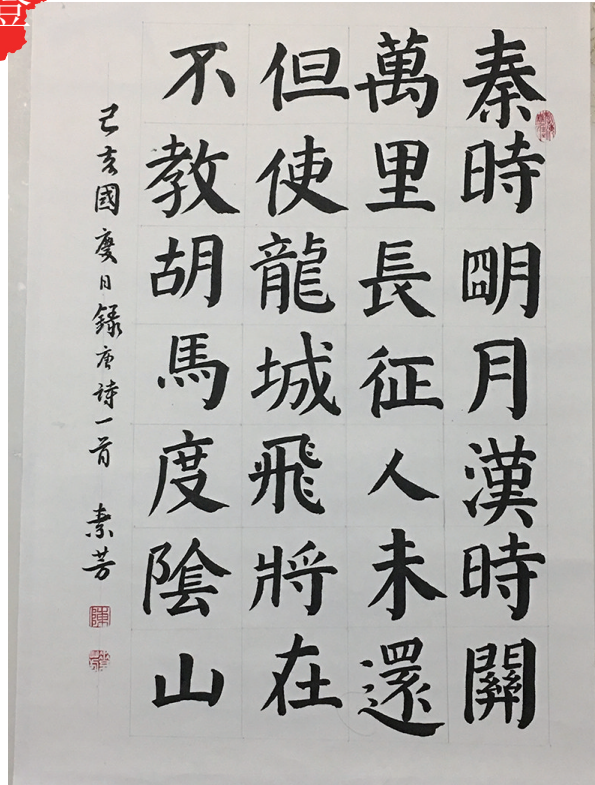 秦時明月漢時關
萬里長征人未還
但使龍城飛將在
不教胡馬度陰山
己亥國慶日錄唐詩一首 素芳
陳